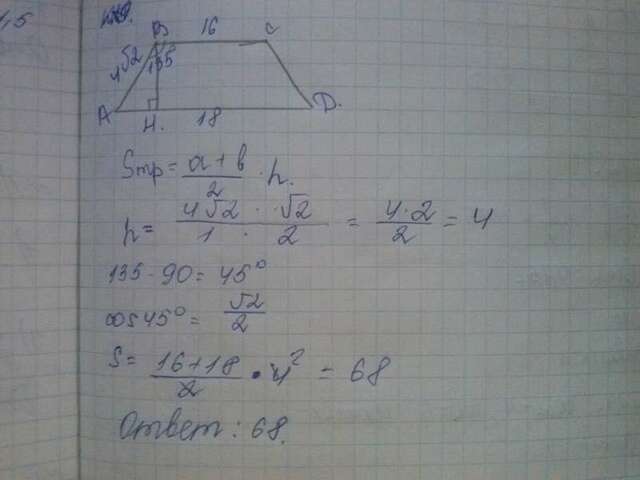 1,5
B 16 C
4√2 135
A H. 18 D.
Sтр = a+b/2 · h.
h = 4√2 · √2 / 1 · 2 = 4·2/2 = 4
135-90=45°
cos45° = √2/2
S = 16+18/2 · 4² = 68
Ответ: 68.